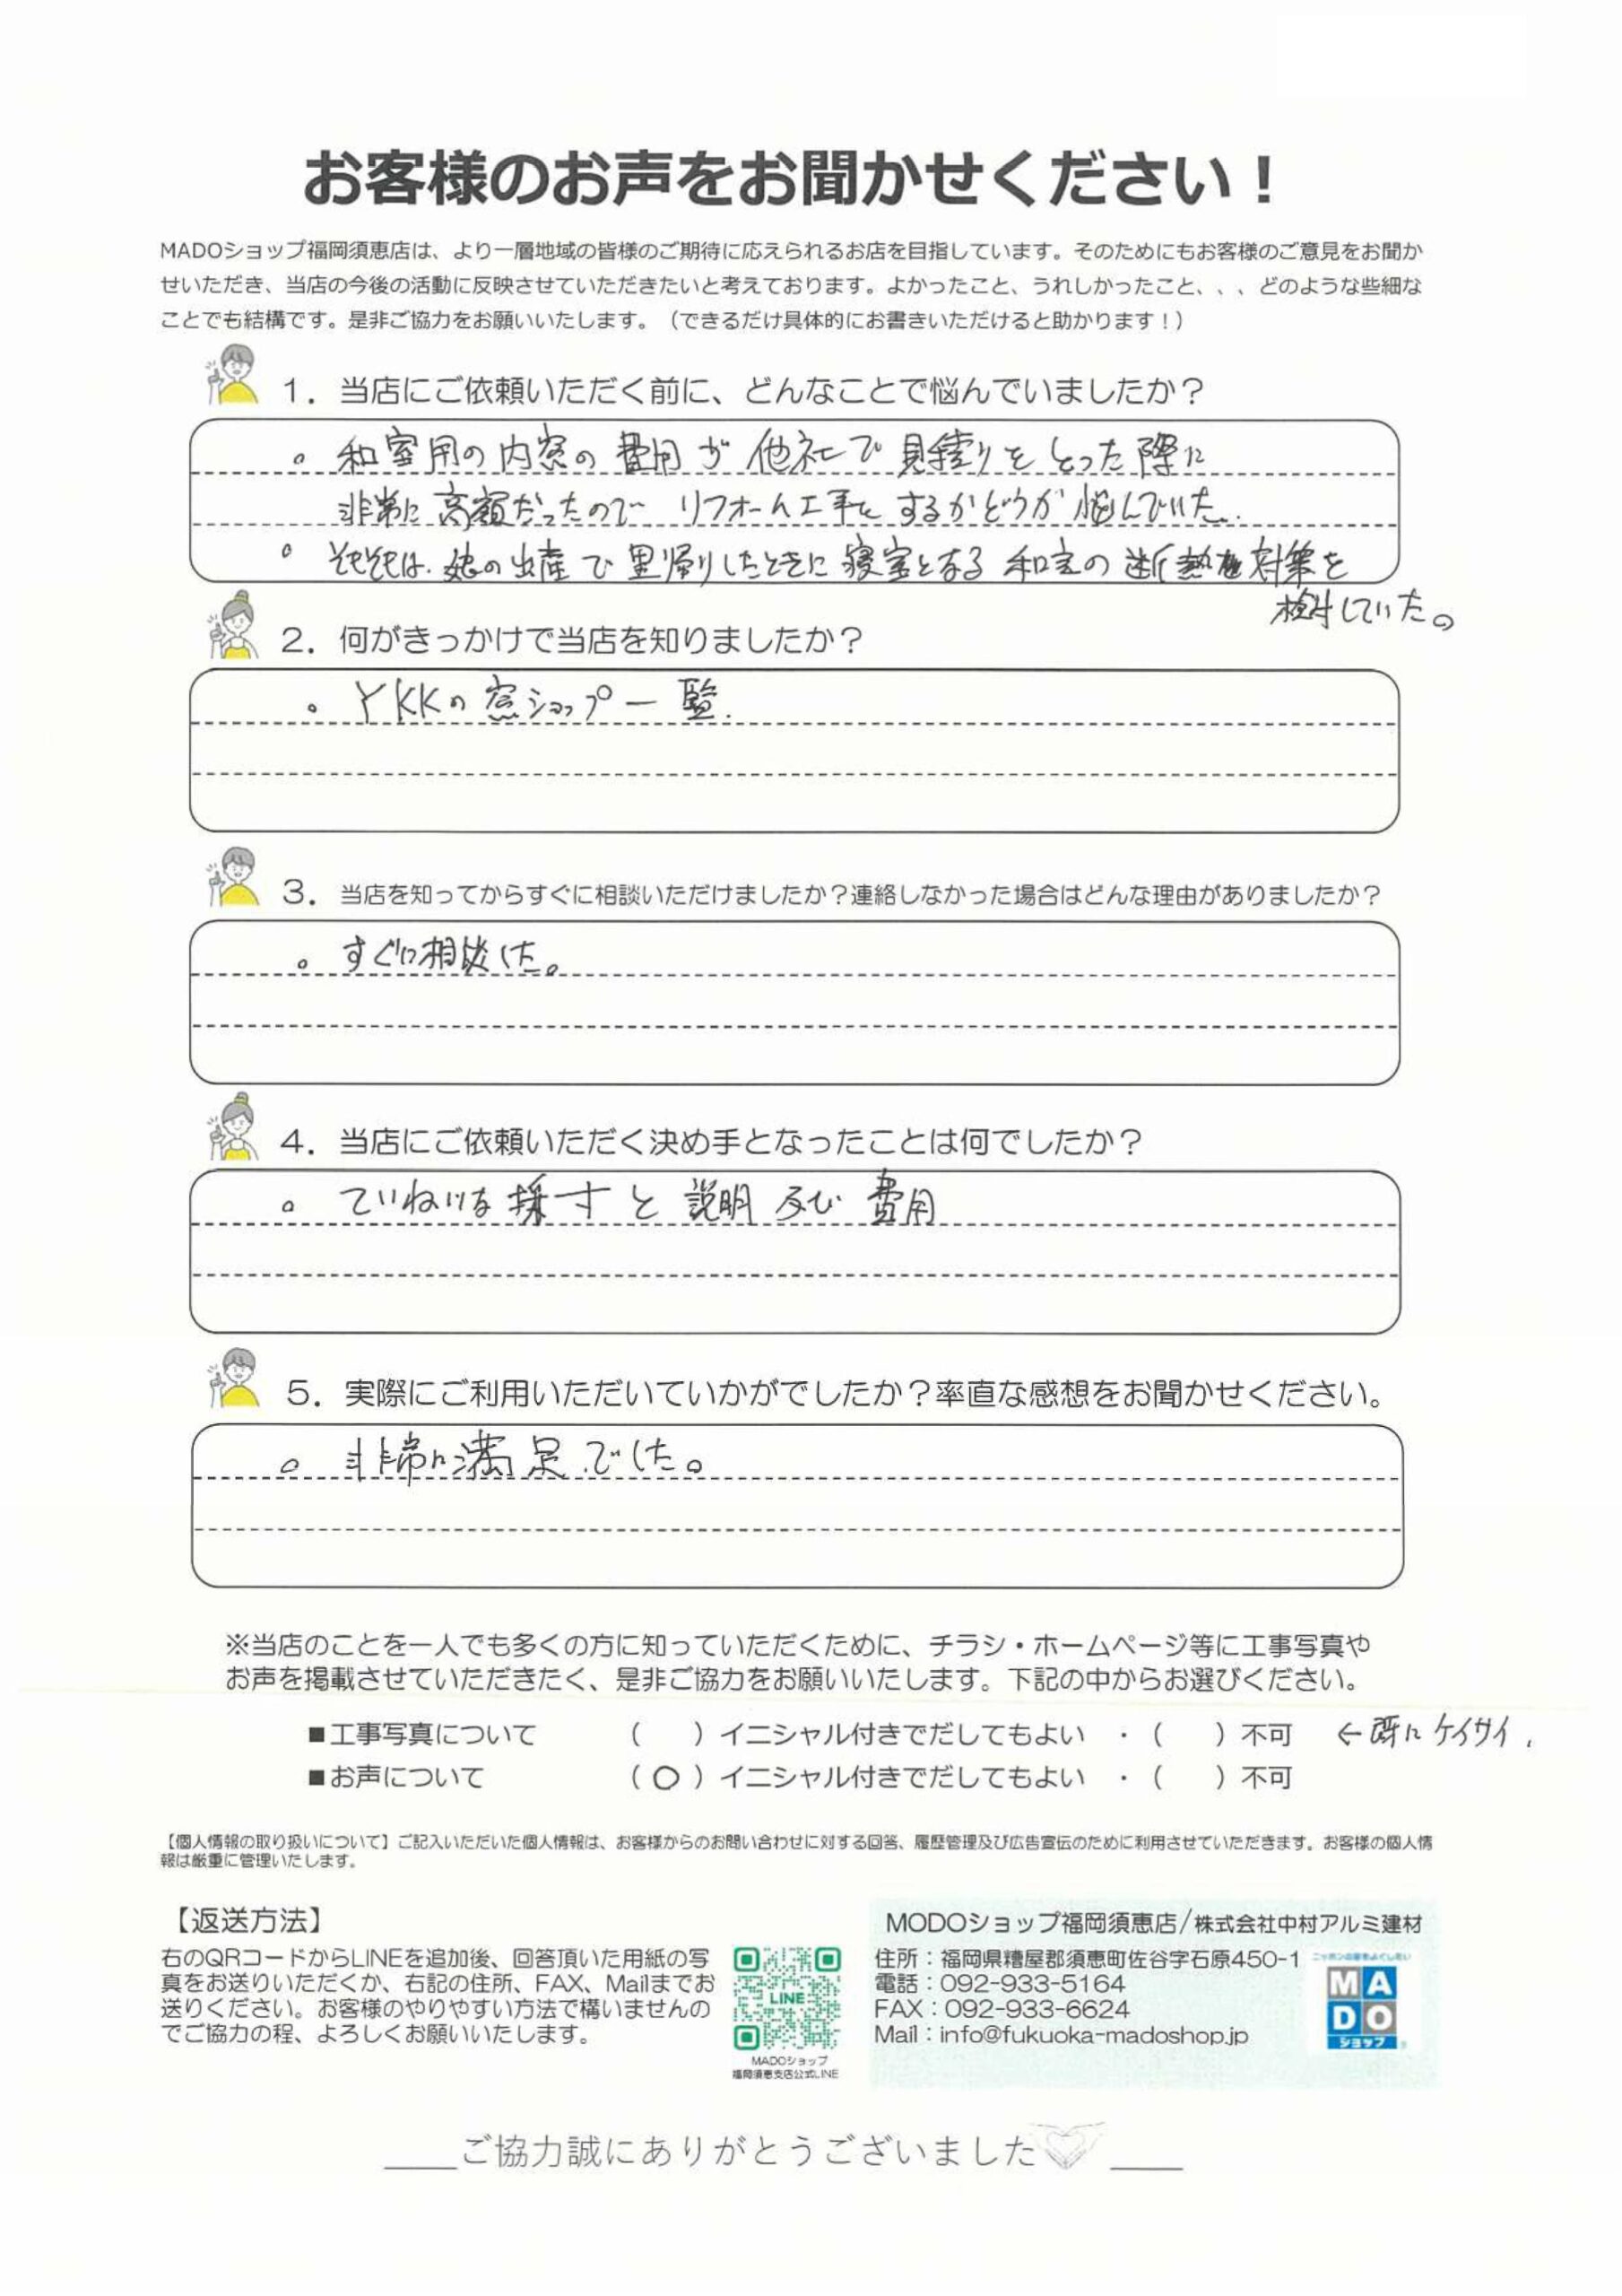 お客様のお声をお聞かせください！
MADOショップ福岡須恵店は、より一層地域の皆様のご期待に応えられるお店を目指しています。そのためにもお客様のご意見をお聞か
せいただき、当店の今後の活動に反映させていただきたいと考えております。よかったこと、うれしかったこと、、、どのような些細な
ことでも結構です。是非ご協力をお願いいたします。（できるだけ具体的にお書きいただけると助かります！）
1．当店にご依頼いただく前に、どんなことで悩んでいましたか？
。和室用の内窓の費用が他社で見積りをとった際に
非常に高額だったので リフォーム工事をするかどうか悩んでいた。
。そもそもは、娘の出産で里帰りしたときに寝室となる和室の断熱対策を
検討していた。
2．何がきっかけで当店を知りましたか？
。YKKの窓ショップ一覧.
3．当店を知ってからすぐに相談いただけましたか？連絡しなかった場合はどんな理由がありましたか？
。すぐに相談した。
4．当店にご依頼いただく決め手となったことは何でしたか？
。ていねいな採寸と説明及び費用
5．実際にご利用いただいていかがでしたか？率直な感想をお聞かせください。
。非常に満足でした。
※当店のことを一人でも多くの方に知っていただくために、チラシ・ホームページ等に工事写真や
お声を掲載させていただきたく、是非ご協力をお願いいたします。下記の中からお選びください。
■工事写真について （　）イニシャル付きでだしてもよい ・（　）不可 ←既にケイサイ.
■お声について （○）イニシャル付きでだしてもよい ・（　）不可
【個人情報の取り扱いについて】ご記入いただいた個人情報は、お客様からのお問い合わせに対する回答、履歴管理及び広告宣伝のために利用させていただきます。お客様の個人情
報は厳重に管理いたします。
【返送方法】
右のQRコードからLINEを追加後、回答頂いた用紙の写
真をお送りいただくか、右記の住所、FAX、Mailまでお
送りください。お客様のやりやすい方法で構いませんの
でご協力の程、よろしくお願いいたします。
LINE
MADOショップ
福岡須恵支店公式LINE
MODOショップ福岡須恵店/株式会社中村アルミ建材
住所：福岡県糟屋郡須恵町佐谷字石原450-1
電話：092-933-5164
FAX：092-933-6624
Mail：info@fukuoka-madoshop.jp
ニッポンの窓をよくしたい
MA
DO
ショップ
ご協力誠にありがとうございました